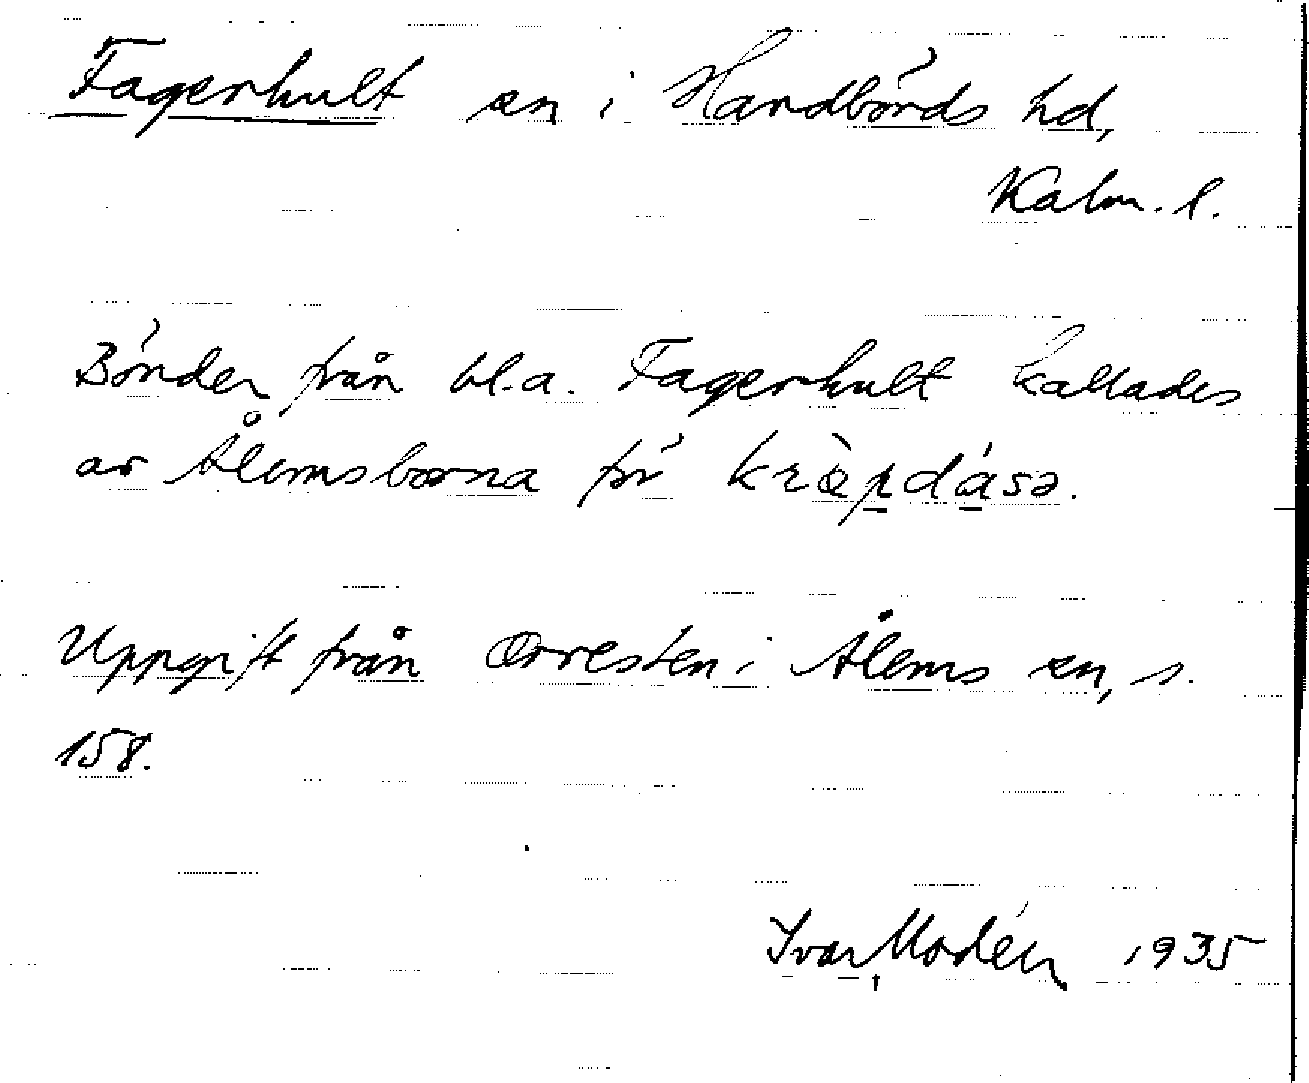 Fagerhult sn i Handbörds hd,
Kalm. l.
Bönder från bl.a. Fagerhult kallades
av Ålemsborna för
Uppgift från Orresten i Ålems sn, s.
158.
Ivar Modéer 1935